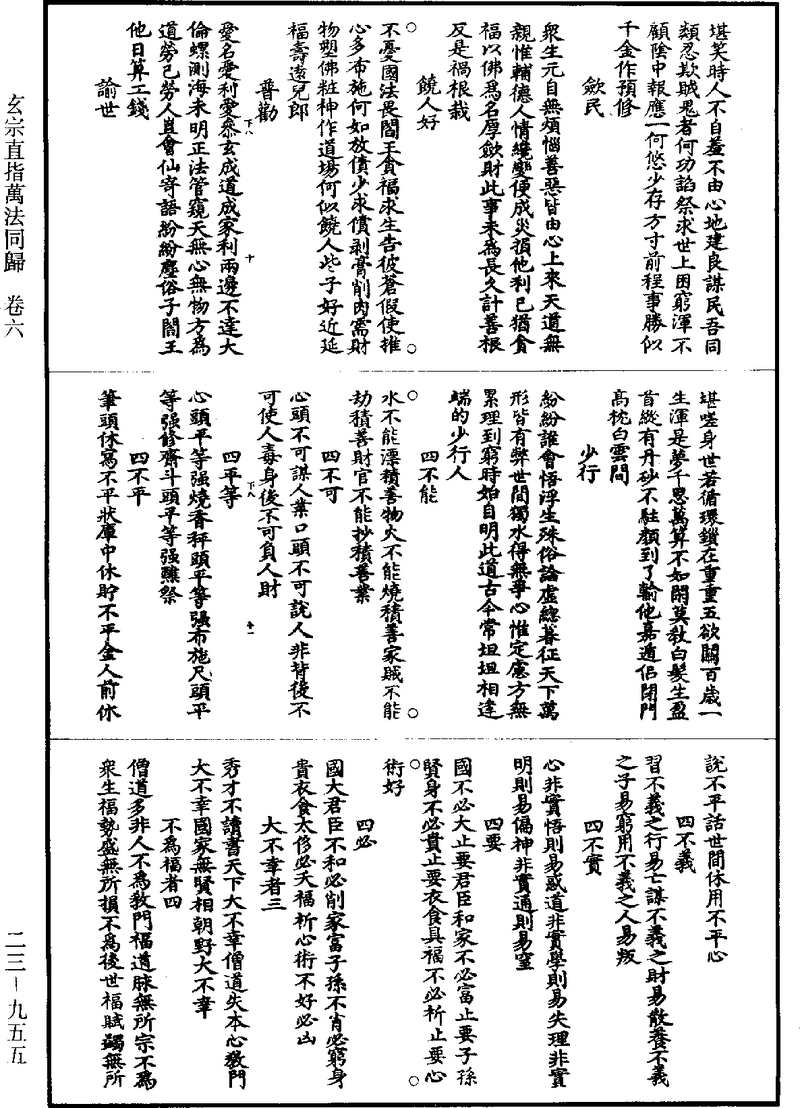 堪笑時人不自羞不由心地建良謀民吾同
類忍欺賊鬼者何功諂祭求世上困窮渾不
顧陰中報應一何悠少存方寸前程事勝似
千金作預修
歛民
衆生元自無煩惱善惡皆由心上來天道無
親惟輔德人情纔變便成災損他利己猶貪
福以佛爲名厚歛財此事未爲長久計善根
反是禍根栽
饒人好
不憂國法畏閻王貪福求生告彼蒼假使推
心多布施何如放債少求償剥膏削肉需財
物塑佛粧神作道場何似饒人些子好近延
福壽遠兒郎
普勸
愛名愛利愛叅玄成道成家利兩邊不達大
倫螺測海未明正法管窺天無心無物方爲
道勞己勞人豈會仙寄語紛紛塵俗子閻王
他日算工錢
諭世
堪嗟身世若循環鎖在重重五欲關百歲一
生渾是夢千思萬算不如閑莫教白髮生盈
首縱有丹砂不駐顏到了輸他嘉遁侣閉門
高枕白雲間
少行
紛紛誰會悟浮生殊俗論虛總暮征天下萬
形皆有弊世間獨水得無爭心惟定處方無
累理到窮時如自明此道古今常坦坦相逢
端的少行人
四不能
水不能漂積善物火不能燒積善家賊不能
劫積善財官不能抄積善業
四不可
心頭不可謀人業口頭不可說人非背後不
可使人毒身後不可負人財
四平等
心頭平等强燒香秤頭平等强布施尺頭平
等强修齋斗頭平等强醮祭
四不平
筆頭休寫不平狀庫中休貯不平金人前休
說不平話世間休用不平心
四不義
習不義之行易亡謀不義之財易散養不義
之子易窮用不義之人易叛
四不實
心非實悟則易惑道非實學則易失理非實
明則易偏神非實通則易窒
四要
國不必大止要君臣和家不必富止要子孫
賢身不必貴止要衣食具福不必祈止要心
術好
四必
國大君臣不和必削家富子孫不肖必窮身
貴衣食太侈必夭福祈心術不好必凶
大不幸者三
秀才不讀書天下大不幸僧道失本心教門
大不幸國家無賢相朝野大不幸
不為福者四
僧道多非人不為教門福道脉無所宗不為
衆生福勢盛無所損不為後世福賦蠲無所
玄宗直指萬法同歸 卷六
二三－九五五